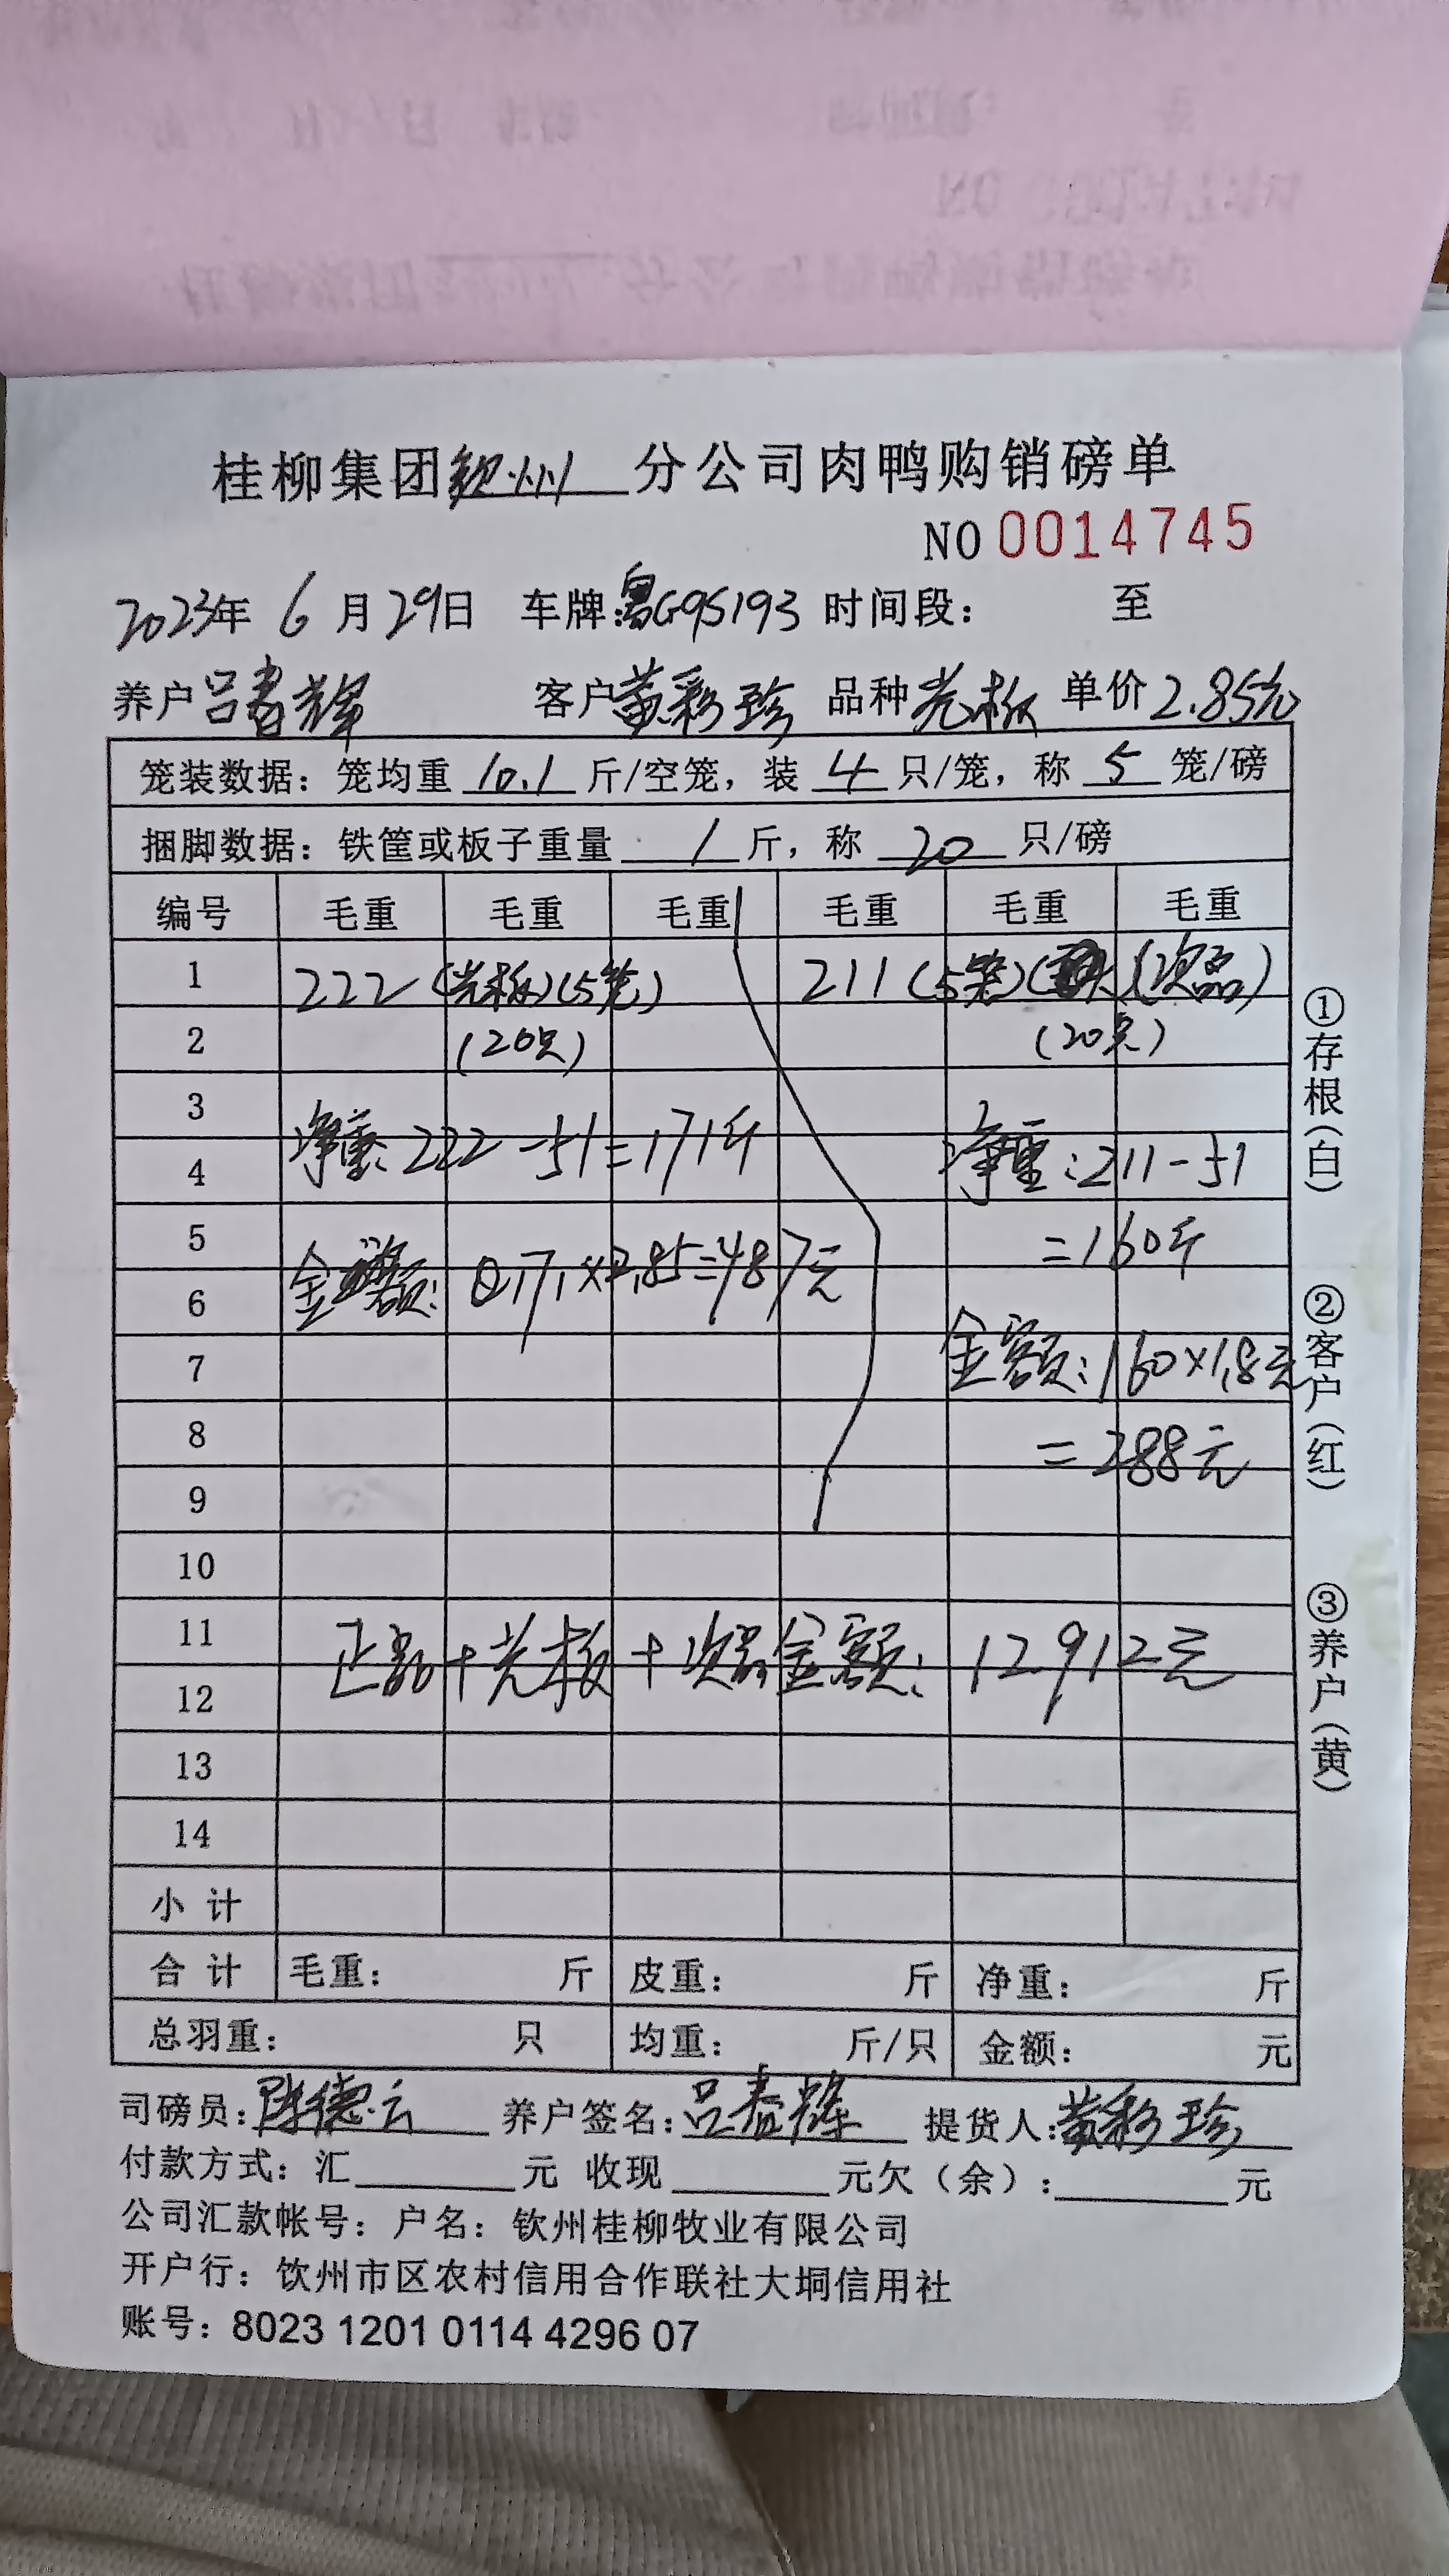 桂柳集团钦州分公司肉鸭购销磅单
NO 0014745
2023年 6 月 29日 车牌:粤G95193 时间段: 至
养户 吕春辉 客户 黄彩珍 品种 光板 单价 2.85元
笼装数据: 笼均重 10.1 斤/空笼, 装 4 只/笼, 称 5 笼/磅
捆脚数据: 铁筐或板子重量 1 斤, 称 20 只/磅
编号 毛重 毛重 毛重 毛重 毛重 毛重
1 222 (光板)(5笼) 211 (5笼) (次品)
2 (20只) (20只)
3
4 净重: 222-51=171斤 净重: 211-51
5 =160斤
6 金额: 171×2.85=487元
7 金额: 160×1.8元
8 =288元
9
10
11 正品+光板+次品金额: 12912元
12
13
14
小计
合计 毛重: 斤 皮重: 斤 净重: 斤
总羽重: 只 均重: 斤/只 金额: 元
司磅员: 陈德云 养户签名: 吕春辉 提货人: 黄彩珍
付款方式: 汇 元 收现 元欠(余): 元
公司汇款帐号: 户名: 钦州桂柳牧业有限公司
开户行: 钦州市区农村信用合作联社大垌信用社
账号: 8023 1201 0114 4296 07
①存根(白)
②客户(红)
③养户(黄)